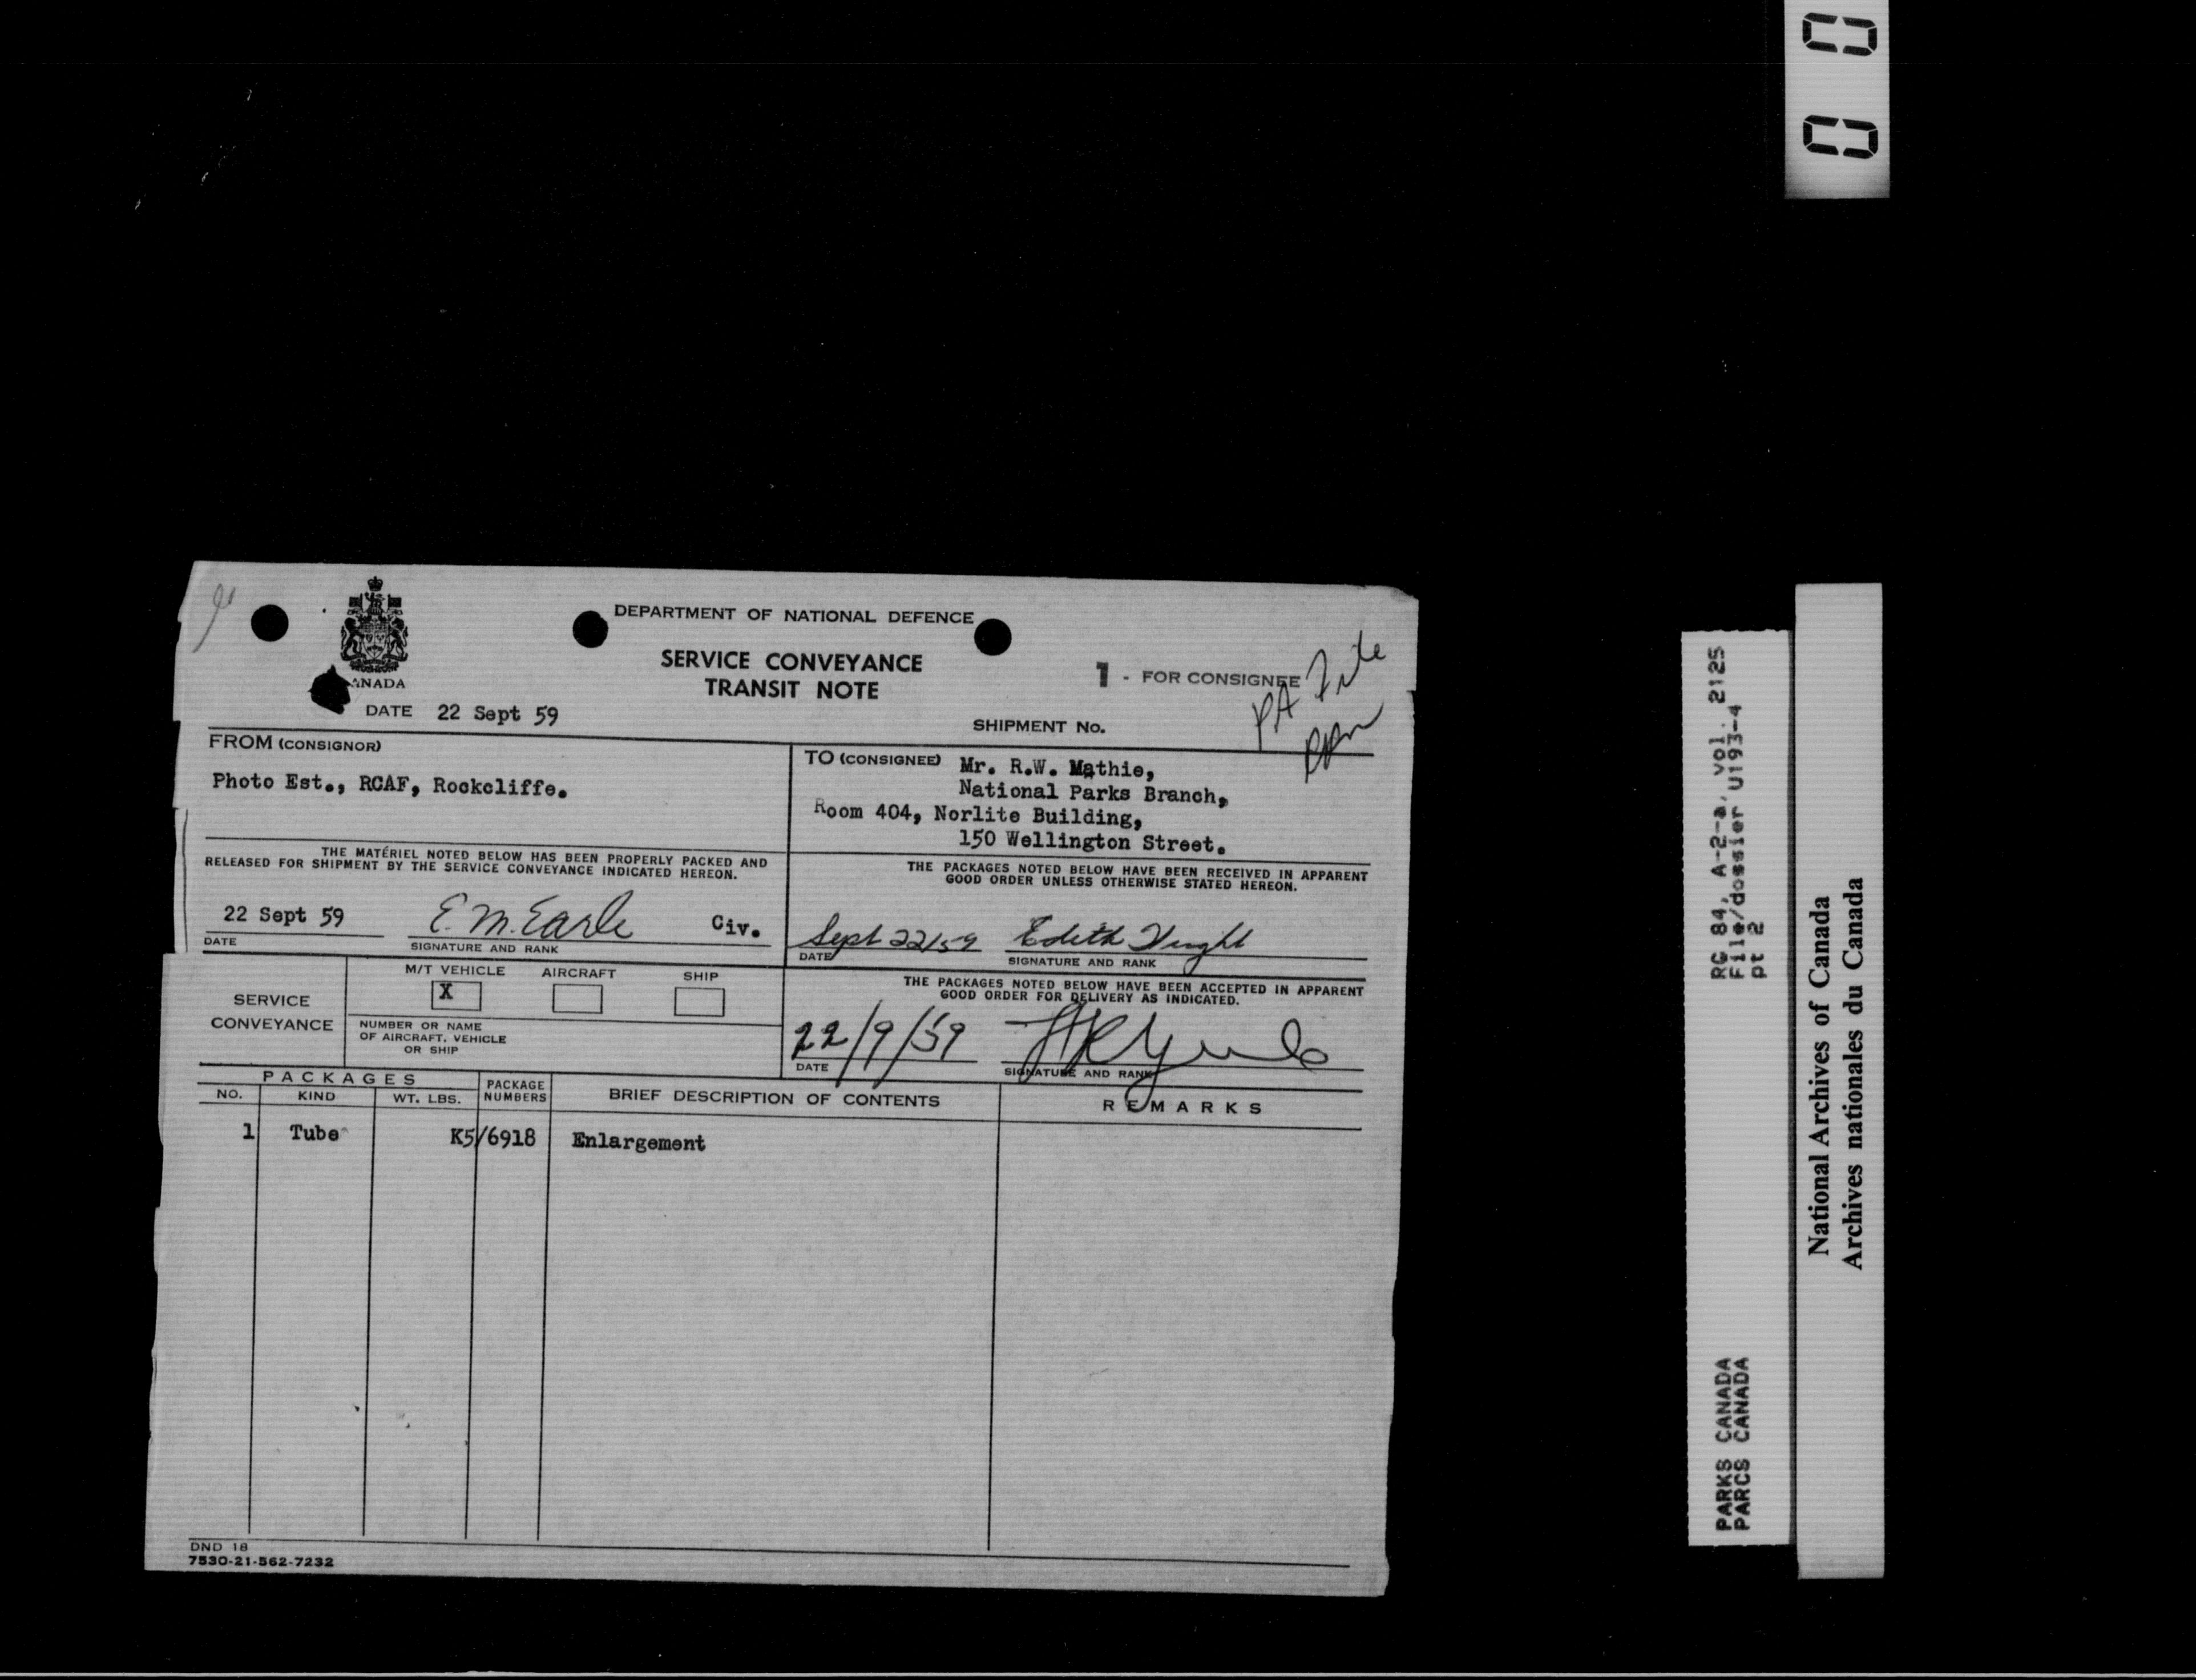 DEPARTMENT OF NATIONAL DEFENCE
SERVICE CONVEYANCE
TRANSIT NOTE
1 - FOR CONSIGNEE
PA File
ANADA
DATE 22 Sept 59
SHIPMENT No.
FROM (CONSIGNOR)
Photo Est., RCAF, Rockcliffe.
TO (CONSIGNEE) Mr. R.W. Mathie,
National Parks Branch,
Room 404, Norlite Building,
150 Wellington Street.
THE MATÉRIEL NOTED BELOW HAS BEEN PROPERLY PACKED AND
RELEASED FOR SHIPMENT BY THE SERVICE CONVEYANCE INDICATED HEREON.
22 Sept 59 E.M. Earle Civ.
DATE SIGNATURE AND RANK
THE PACKAGES NOTED BELOW HAVE BEEN RECEIVED IN APPARENT
GOOD ORDER UNLESS OTHERWISE STATED HEREON.
Sept 22/59 Edith
DATE SIGNATURE AND RANK
SERVICE
CONVEYANCE
M/T VEHICLE AIRCRAFT SHIP
X
NUMBER OR NAME
OF AIRCRAFT, VEHICLE
OR SHIP
THE PACKAGES NOTED BELOW HAVE BEEN ACCEPTED IN APPARENT
GOOD ORDER FOR DELIVERY AS INDICATED.
22/9/59
DATE SIGNATURE AND RANK
PACKAGES
NO. KIND WT. LBS.
PACKAGE
NUMBERS
BRIEF DESCRIPTION OF CONTENTS
REMARKS
1 Tube K5/6918 Enlargement
DND 18
7530-21-562-7232
RG 84, A-2-a, vol. 2125
File/dossier U193-4
pt 2
PARKS CANADA
PARCS CANADA
National Archives of Canada
Archives nationales du Canada